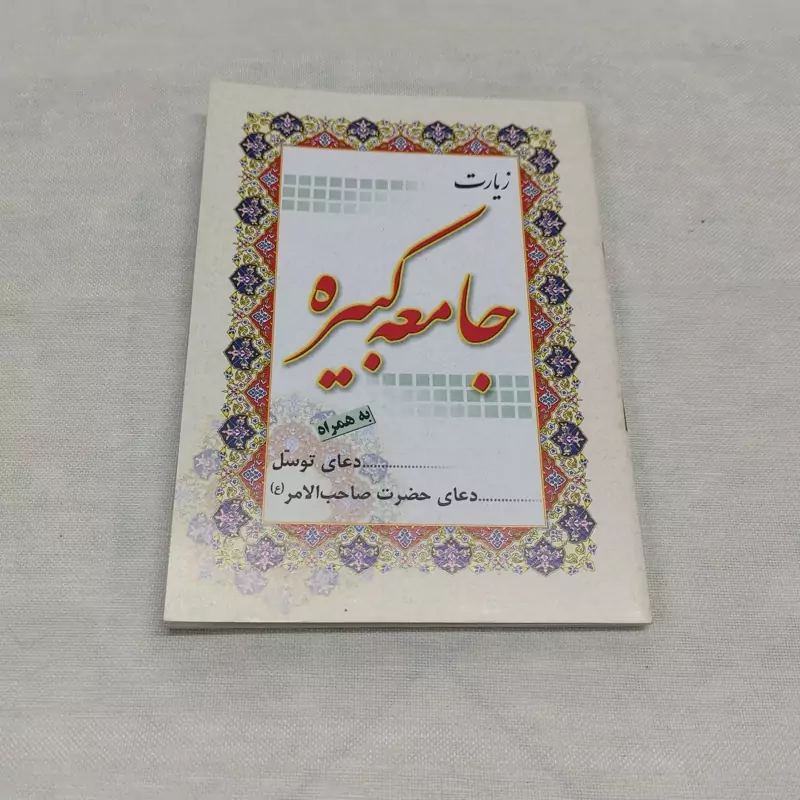 زیارت
جامعه کبیره
به همراه
دعای توسّل
دعای حضرت صاحب‌الامر(ع)